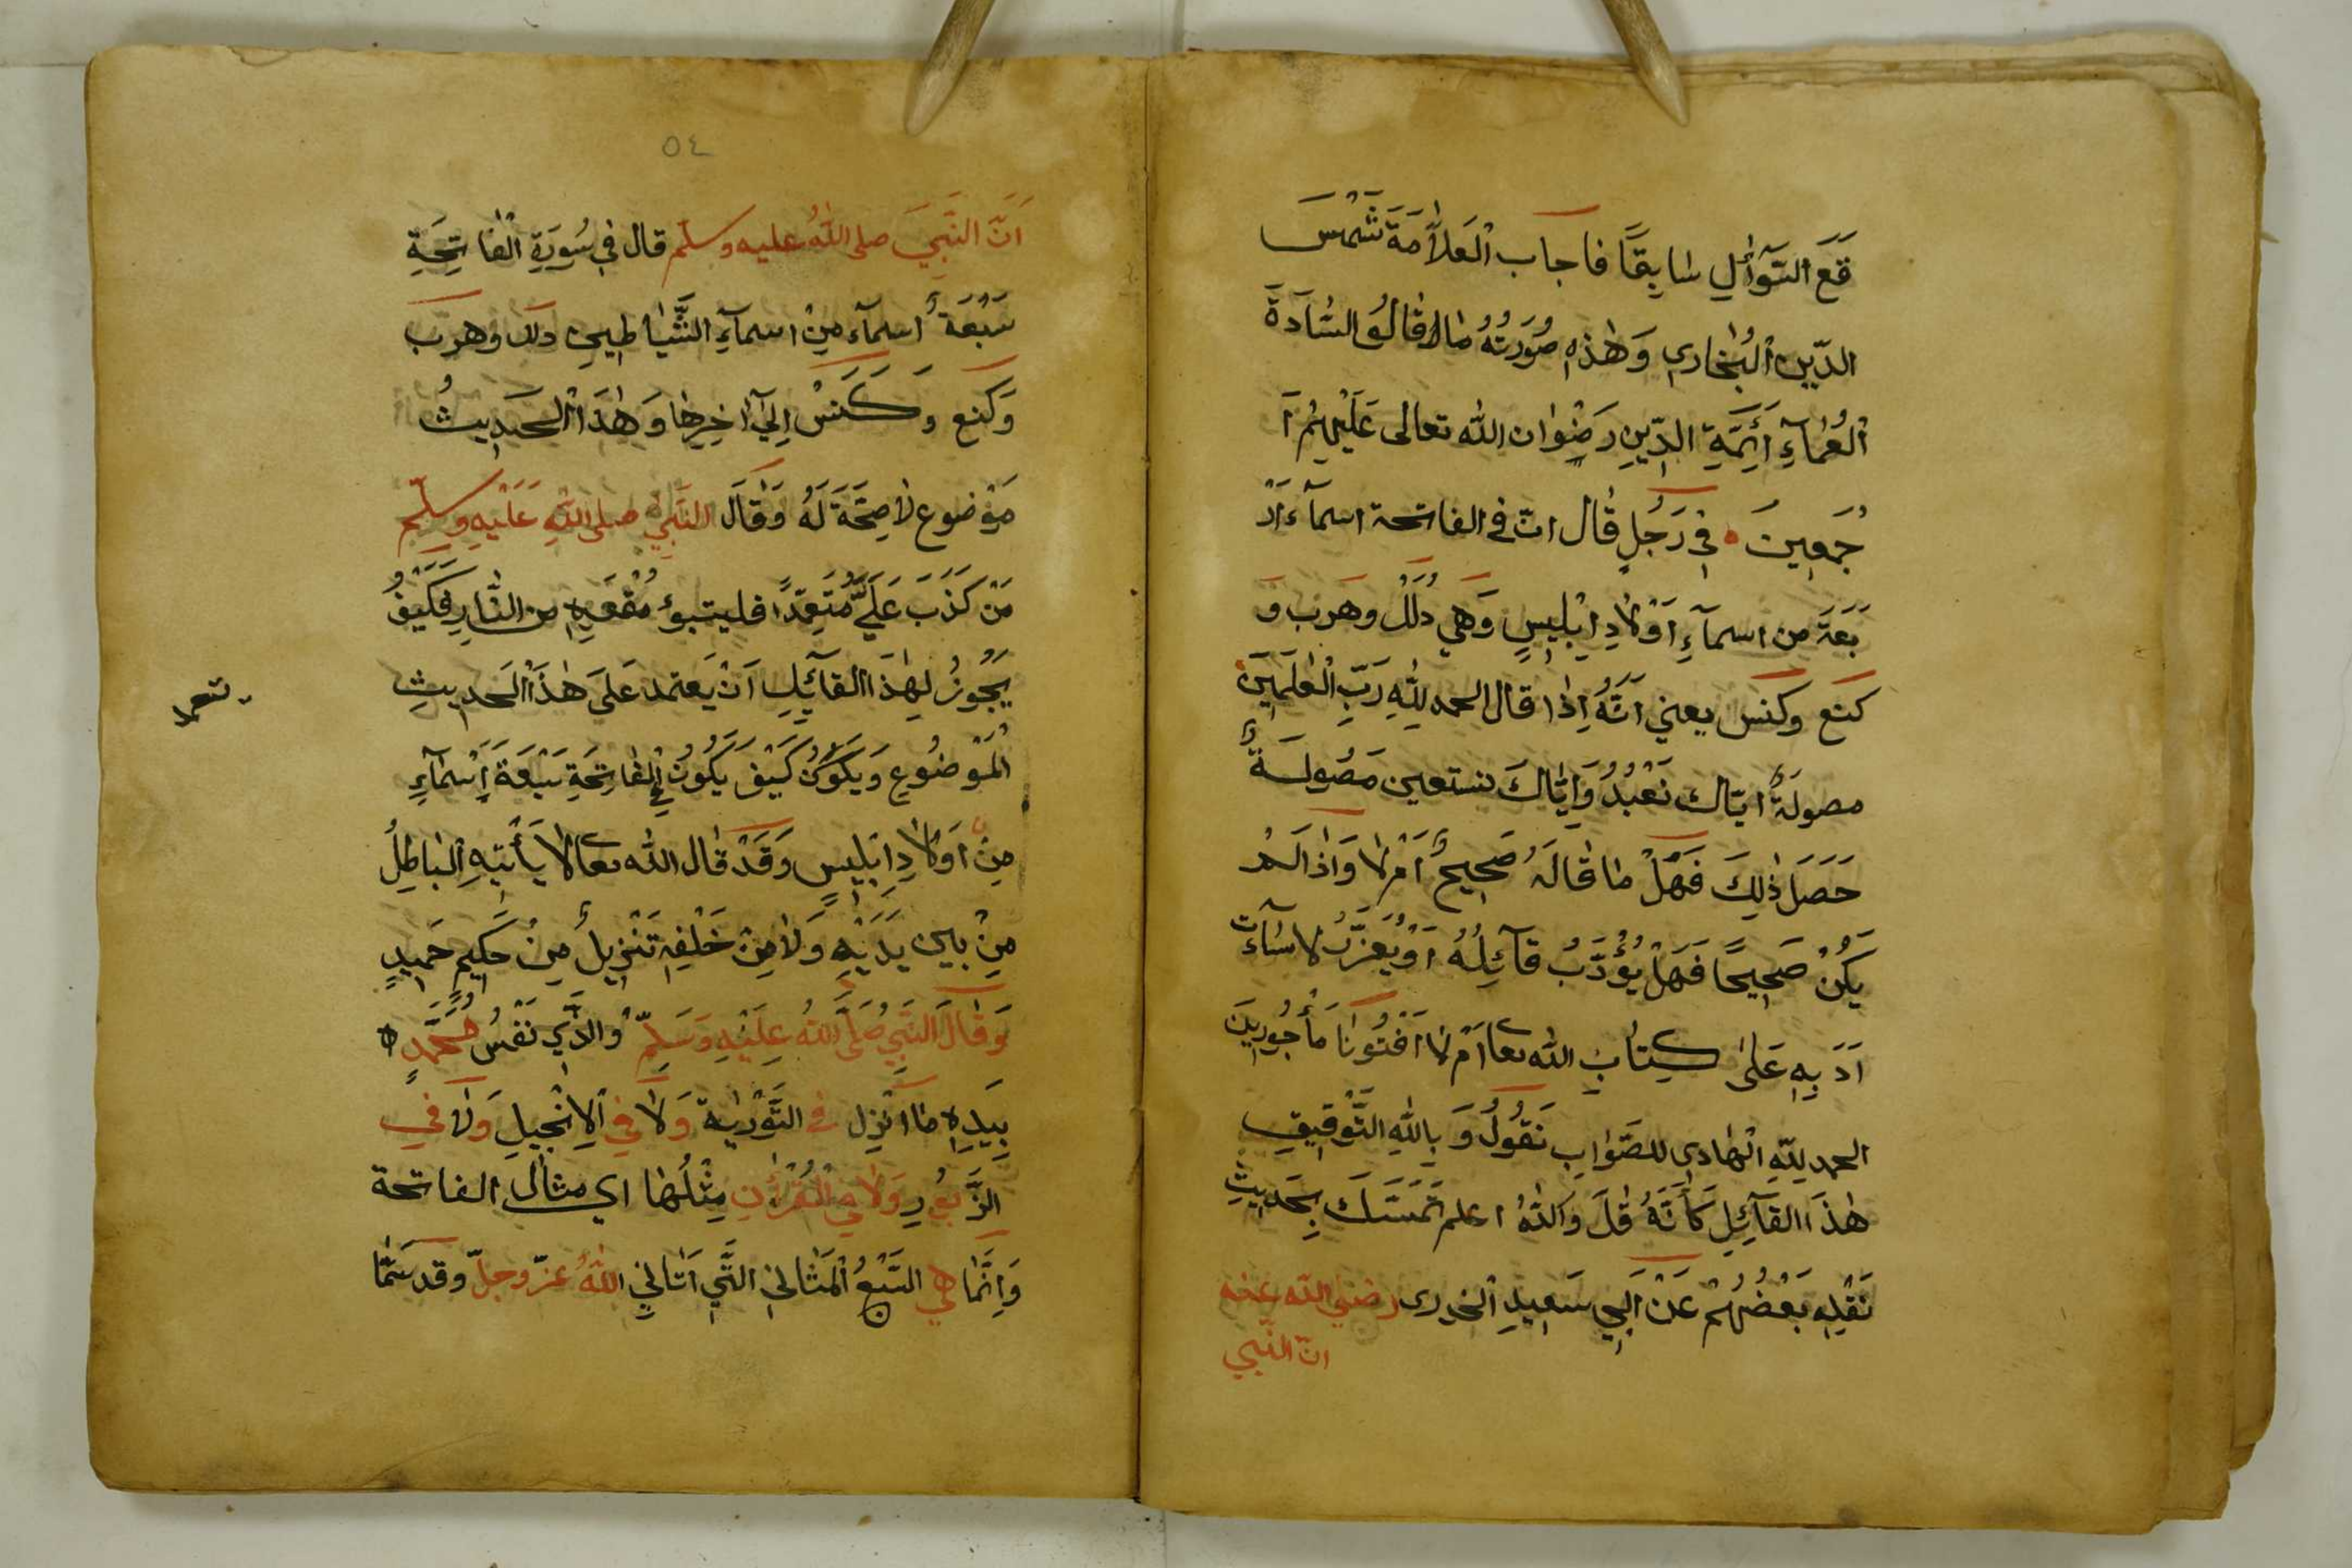 قَعَ السّوآئلِ سَابِقًا فاجاب الْعَلاَّمَة شَمْسَ
الدّين الْبُخَارى وَهٰذِهِ صُورَتُهُ مَا قَالَهُ السَّادَةَ
الْعُمَآءِ أَئِمَّةِ الدِّينِ رَضِوان الله تعالى عَلَيْهِمْ اَ
جْمَعِينَ ٥ فِى رَجُلٍ قال انّ فى الفاتحة اسمآء اَرْ
بَعَةَ من اسمآءِ اَوْلادِ اِبْلِيسٍ وَهِي دُلَلْ وهَرب وَ
كنَع وكنس يعنى اَنَّهُ اِذا قال الحمد لِلّٰهِ رَبِّ الْعٰلَمِينَ
مصولةٌ ايّاك نَعْبُدُ وَاِيَّاكَ نستعين مَصُولَةٌ
حَصَلَ ذٰلِكَ فَهَلْ مَا قَالَهُ صَحِيحٌ اَمْ لا وَاذا لَمْ
يَكُنْ صَحِيحًا فَهَلْ يُؤَدَّبُ قَآئِلُهُ اَوْ يُعَزَّرُ لاسَآءَت
اَدَبِهِ عَلىٰ كِتَابِ الله تعا اَمْ لا اَفْتُونَا مَأْجُورِينَ
الحمد لِلّٰهِ الْهَادِى للصَّوابِ نَقُولُ وَ بِاللّٰهِ التَّوْفِيقِ
هٰذَا القَآئِلِ كَأَنَّهُ قَلَ وَاللّٰهُ اعلم تَمَسَّكَ بِحَدِيثِ
نَقَلِه بَعْضُهُمْ عَنْ اَبِي سَعِيدِ الْخدرى رضي الله عنه
انّ النّبي
٥٤
اَنَّ النَّبِيَ صلى اللّٰهُ عليه وسلّم قال فى سُورَةِ الْفَاتِحَةِ
سَبْعَةُ اسمآء مِنْ اسمآءِ الشَّيَاطِينِ دلل وهرب
وَكنع وَ كَنَسْ اِلىٰ آخِرِهَا وَهٰذَا الْحَدِيثُ
مَوْضوع لاَ صِحَّةَ لَهُ وَقَالَ النَّبِيُّ صلى اللّٰهِ عَلَيْهِ وسلّم
مَنْ كَذَبَ عَلَيَّ مُتَعِمّدًا فليتبوؤ مُقعَدِهِ من النَّارِ فَكَيْفُ
يَجُوزُ لِهٰذَا القآئِلِ اَنْ يَعتمد عَلىَ هٰذَا الْحَديثِ
الْمَوْضُوعِ وَيَكُونُ كَيْفَ يَكُونُ فِي الْفَاتِحَةِ سَبْعَةَ اَسْمَآءٍ
مِنْ اَوْلادِ اِبْلِيسٍ وَقَدْ قال اللّٰه تعا لا يَأْتِيهِ الْبَاطِلُ
مِنْ بين يدَيْهِ وَلاَ مِنْ خَلْفِهِ تَنْزِيلٌ مِنْ حَكِيمٍ حَمِيدٍ
وَقَالَ النَّبِيُ صَلَّى اللّٰهُ عِلَيْهِ وَسَلِمّ وَالذَّي نَفْسُ مُحَمَّدٍ ٥
بِيَدِهِ مَا انْزِل فى التَّوْرٰيةَ وَلاَ فِي الِانْجِيلِ وَلا في
الزَّبُورِ وَلاَ فِي الْقُرْاٰنِ مِثْلُهَا اى مثال الفاتحة
وَاِنَّمَا هِي السَّبْعُ الْمَثَانِي الَّتِي اَتانِي اللّٰهُ عزّ وجلّ وقد سَمَّا